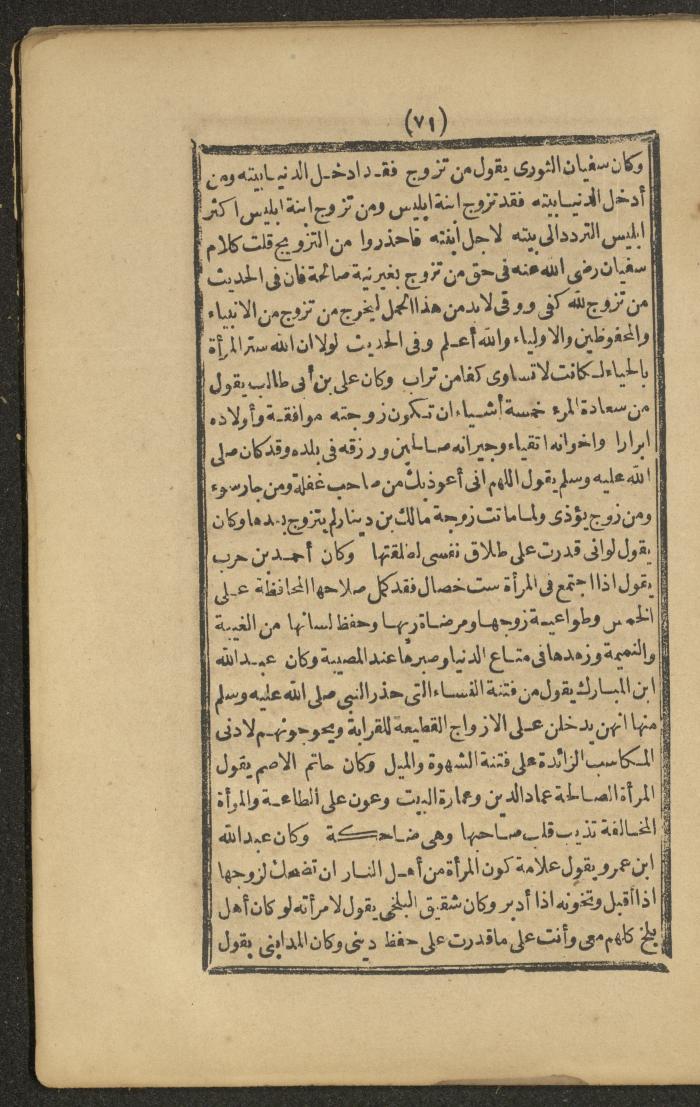 (٧١)
وكان سفيان الثورى يقول من تزوج فقد ادخل الدنيا بيته ومن
أدخل الدنيا بيته فقد تزوج ابنة ابليس ومن تزوج ابنة ابليس اكثر
ابليس التردد الى بيته لاجل ابنته فاحذروا من التزويج قلت كلام
سفيان رضى الله عنه فى حق من تزوج بغير نية صالحة فان فى الحديث
من تزوج لله كفى ووقى لابد من هذا الحمل ليخرج من تزوج من الانبياء
والمحفوظين والاولياء والله أعلم وفى الحديث لولا ان الله ستر المرأة
بالحياء لكانت لا تساوى كفا من تراب وكان على بن أبى طالب يقول
من سعادة المرء خمسة أشياء ان تكون زوجته موافقة وأولاده
ابرارا واخوانه اتقياء وجيرانه صالحين ورزقه فى بلده وقد كان صلى
الله عليه وسلم يقول اللهم انى أعوذ بك من صاحب غفلة ومن جار سوء
ومن زوج يؤذى ولما ماتت زوجة مالك بن دينار لم يتزوج بعدها وكان
يقول لو انى قدرت على طلاق نفسى لطلقتها وكان أحمد بن حرب
يقول اذا اجتمع فى المرأة ست خصال فقد كمل صلاحها المحافظة على
الخمس وطواعية زوجها ومرضاة ربها وحفظ لسانها من الغيبة
والنميمة وزهدها فى متاع الدنيا وصبرها عند المصيبة وكان عبد الله
ابن المبارك يقول من فتنة النساء التى حذر النبى صلى الله عليه وسلم
منها انهن يدخلن على الازواج القطيعة للقرابة ويحوجونهم لادنى
المكاسب الزائدة على فتنة الشهوة والميل وكان حاتم الاصم يقول
المرأة الصالحة عماد الدين وعمارة البيت وعون على الطاعة والمرأة
المخالفة تذيب قلب صاحبها وهى ضاحكة وكان عبد الله
ابن عمر ويقول علامة كون المرأة من أهل النار ان تضحك لزوجها
اذا أقبل وتخونه اذا أدبر وكان شقيق البلخى يقول لامرأته لو كان أهل
بلخ كلهم معى وأنت على ما قدرت على حفظ دينى وكان المداينى يقول